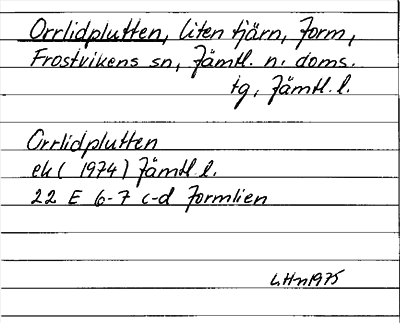 Orrlidplutten, liten tjärn, Form,
Frostvikens sn, Jämtl. n. doms.
tg, Jämtl. l.
Orrlidplutten
ek ( 1974) Jämtl l.
22 E 6-7 c-d Formlien
L.Hn 1975